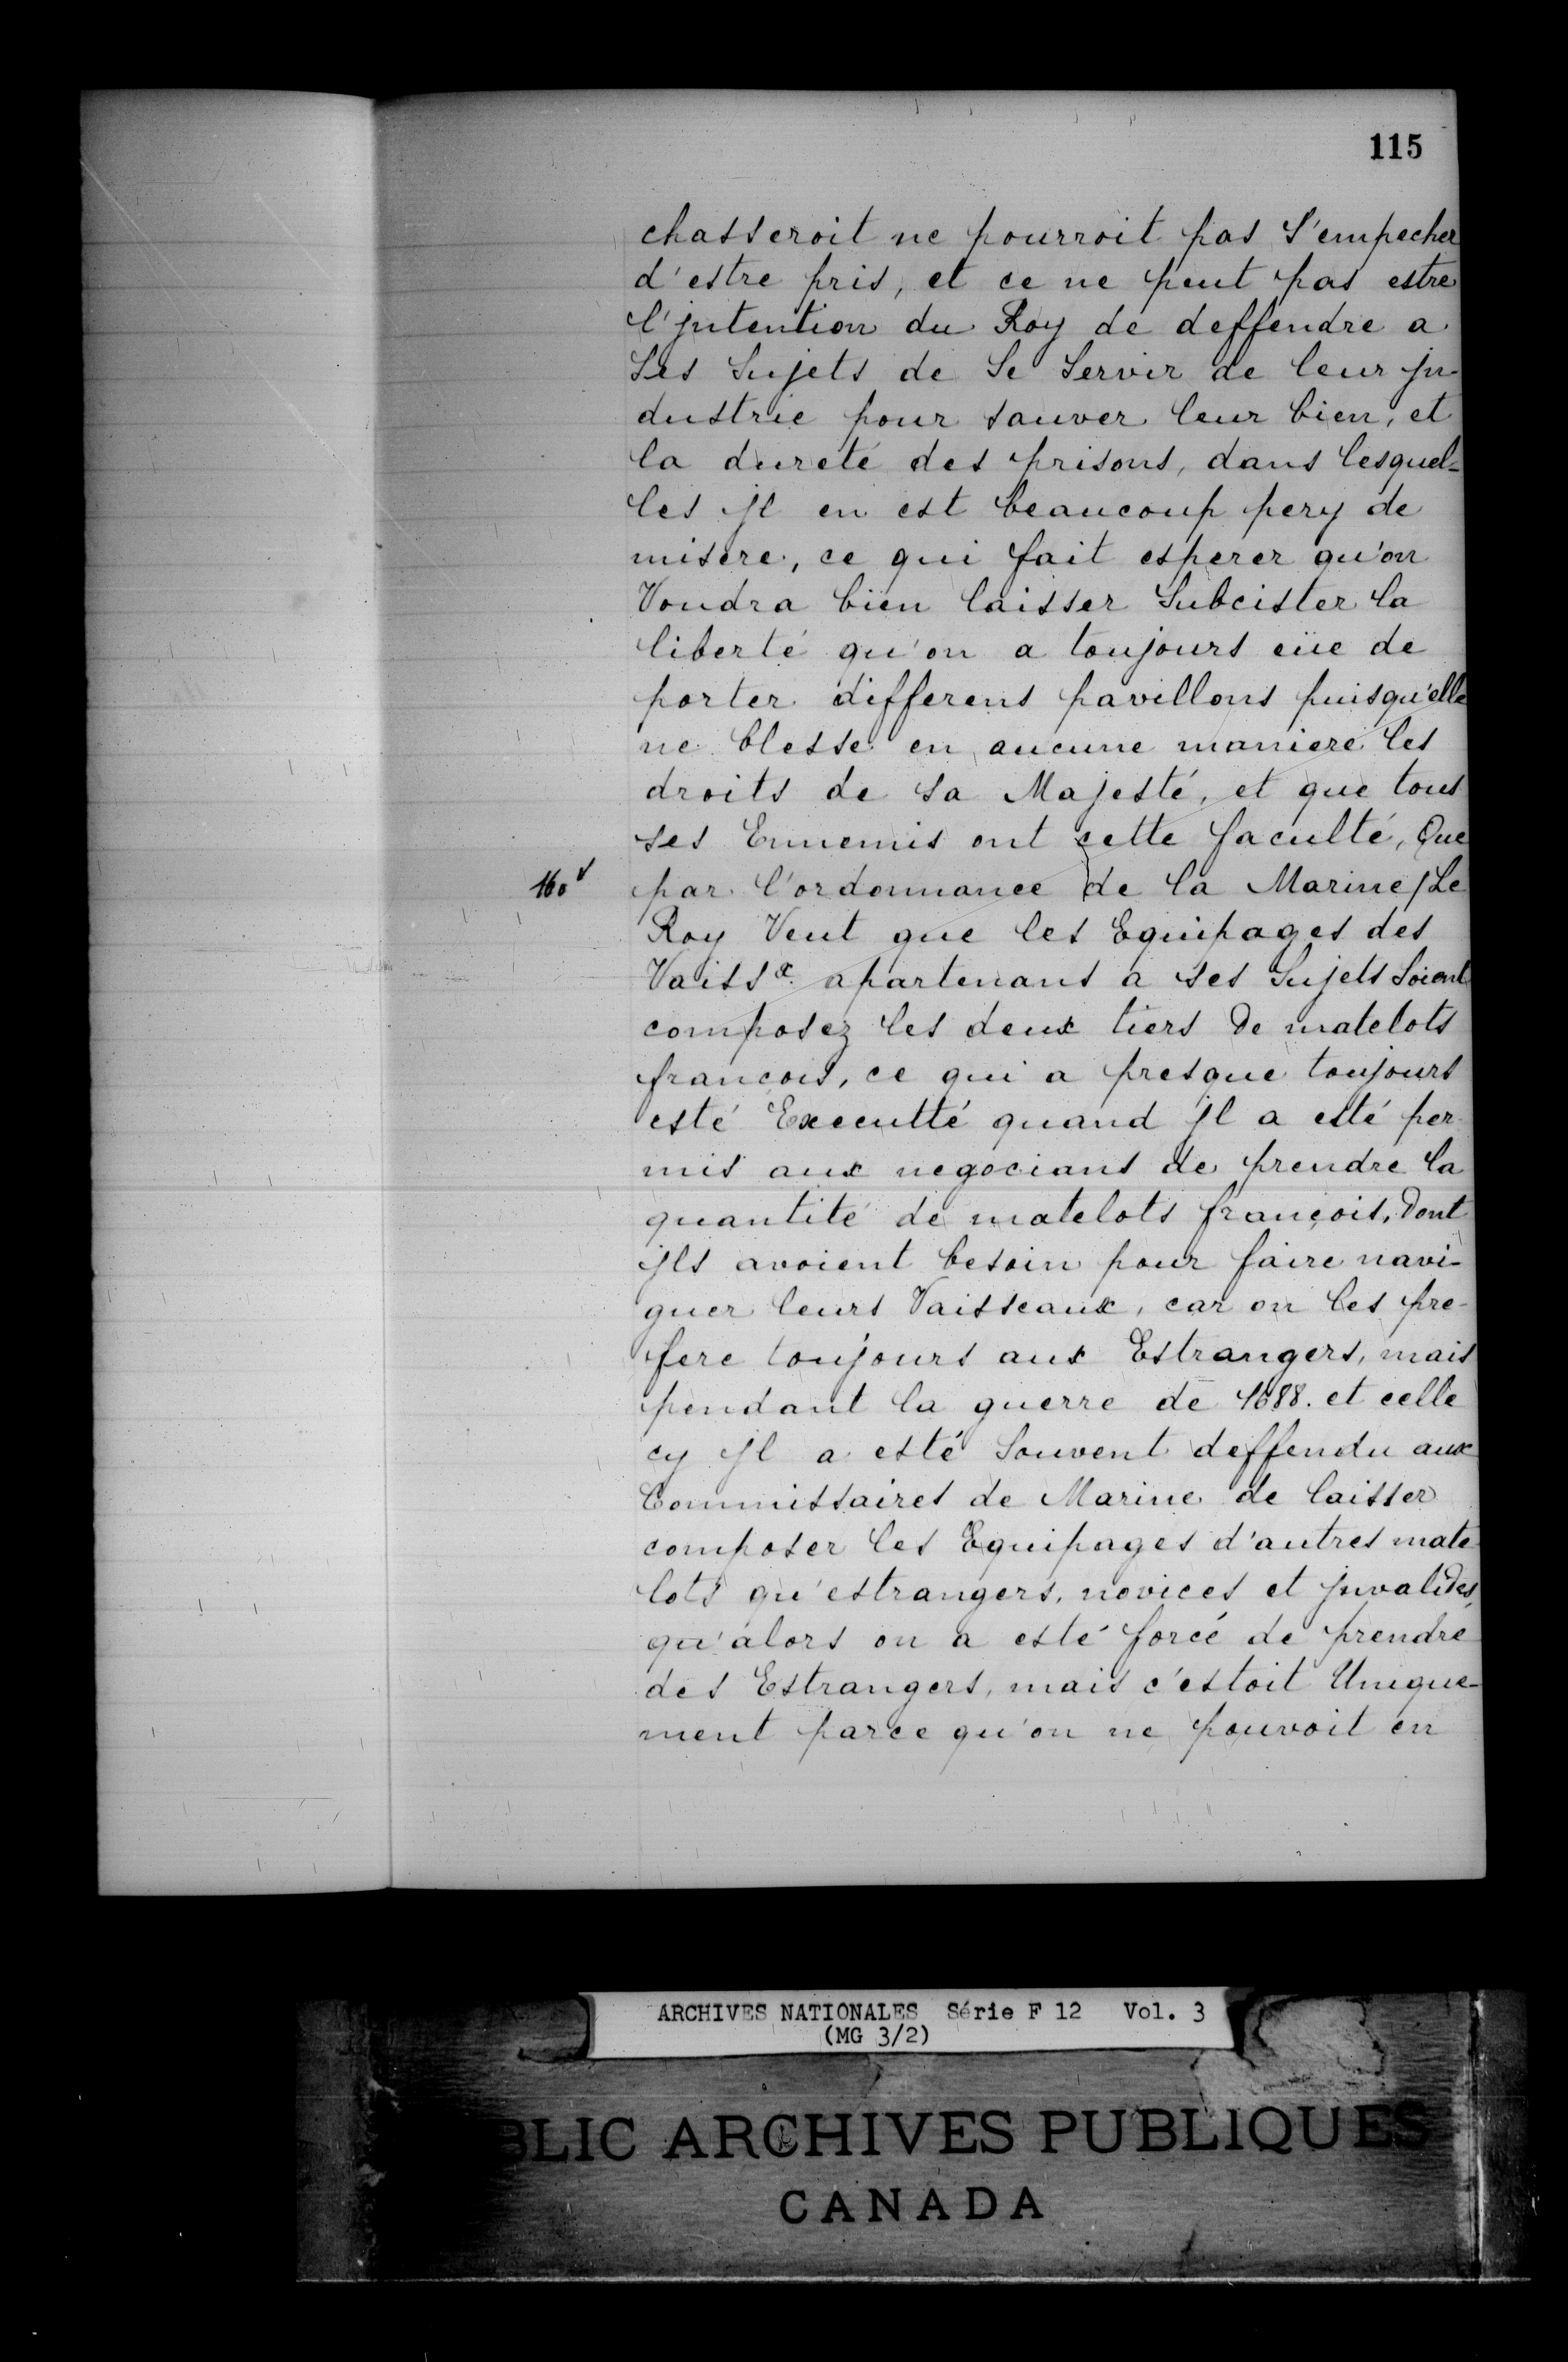 115
chasseroit ne pourroit pas S'empecher
d'estre pris, et ce ne peut pas estre
l'jntention du Roy de deffendre a
Ses Sujets de Se Servir de leur jn-
dustrie pour sauver leur bien, et
la dureté des prisons, dans lesquel-
les jl en est beaucoup pery de
misere, ce qui fait esperer qu'on
Voudra bien laisser Subcister la
liberté qu'on a toujours eüe de
porter differens pavillons puisqu'elle
ne blesse en aucune maniere les
droits de sa Majesté, et que tous
ses Ennemis ont cette faculté, Que
160v par l'ordonnance de la Marine / Le
Roy Veut que les Equipages des
Vaissx apartenans a ses Sujets Soient
composez les deux tiers de matelots
francois, ce qui a presque toujours
esté Executté quand jl a esté per-
mis aux negocians de prendre la
quantité de matelots françois, dont
jls avoient besoin pour faire navi-
guer leurs Vaisseaux, car on les pre-
fere toujours aux Estrangers, mais
pendant la guerre de 1688. et celle
cy jl a esté Souvent deffendu aux
Commissaires de Marine de laisser
composer les Equipages d'autres mate
lots qu'estrangers, novices et jnvalides,
qu'alors on a esté forcé de prendre
des Estrangers, mais c'estoit Unique-
ment parce qu'on ne pouvoit en
ARCHIVES NATIONALES Série F 12 Vol. 3
(MG 3/2)
BLIC ARCHIVES PUBLIQUES
CANADA